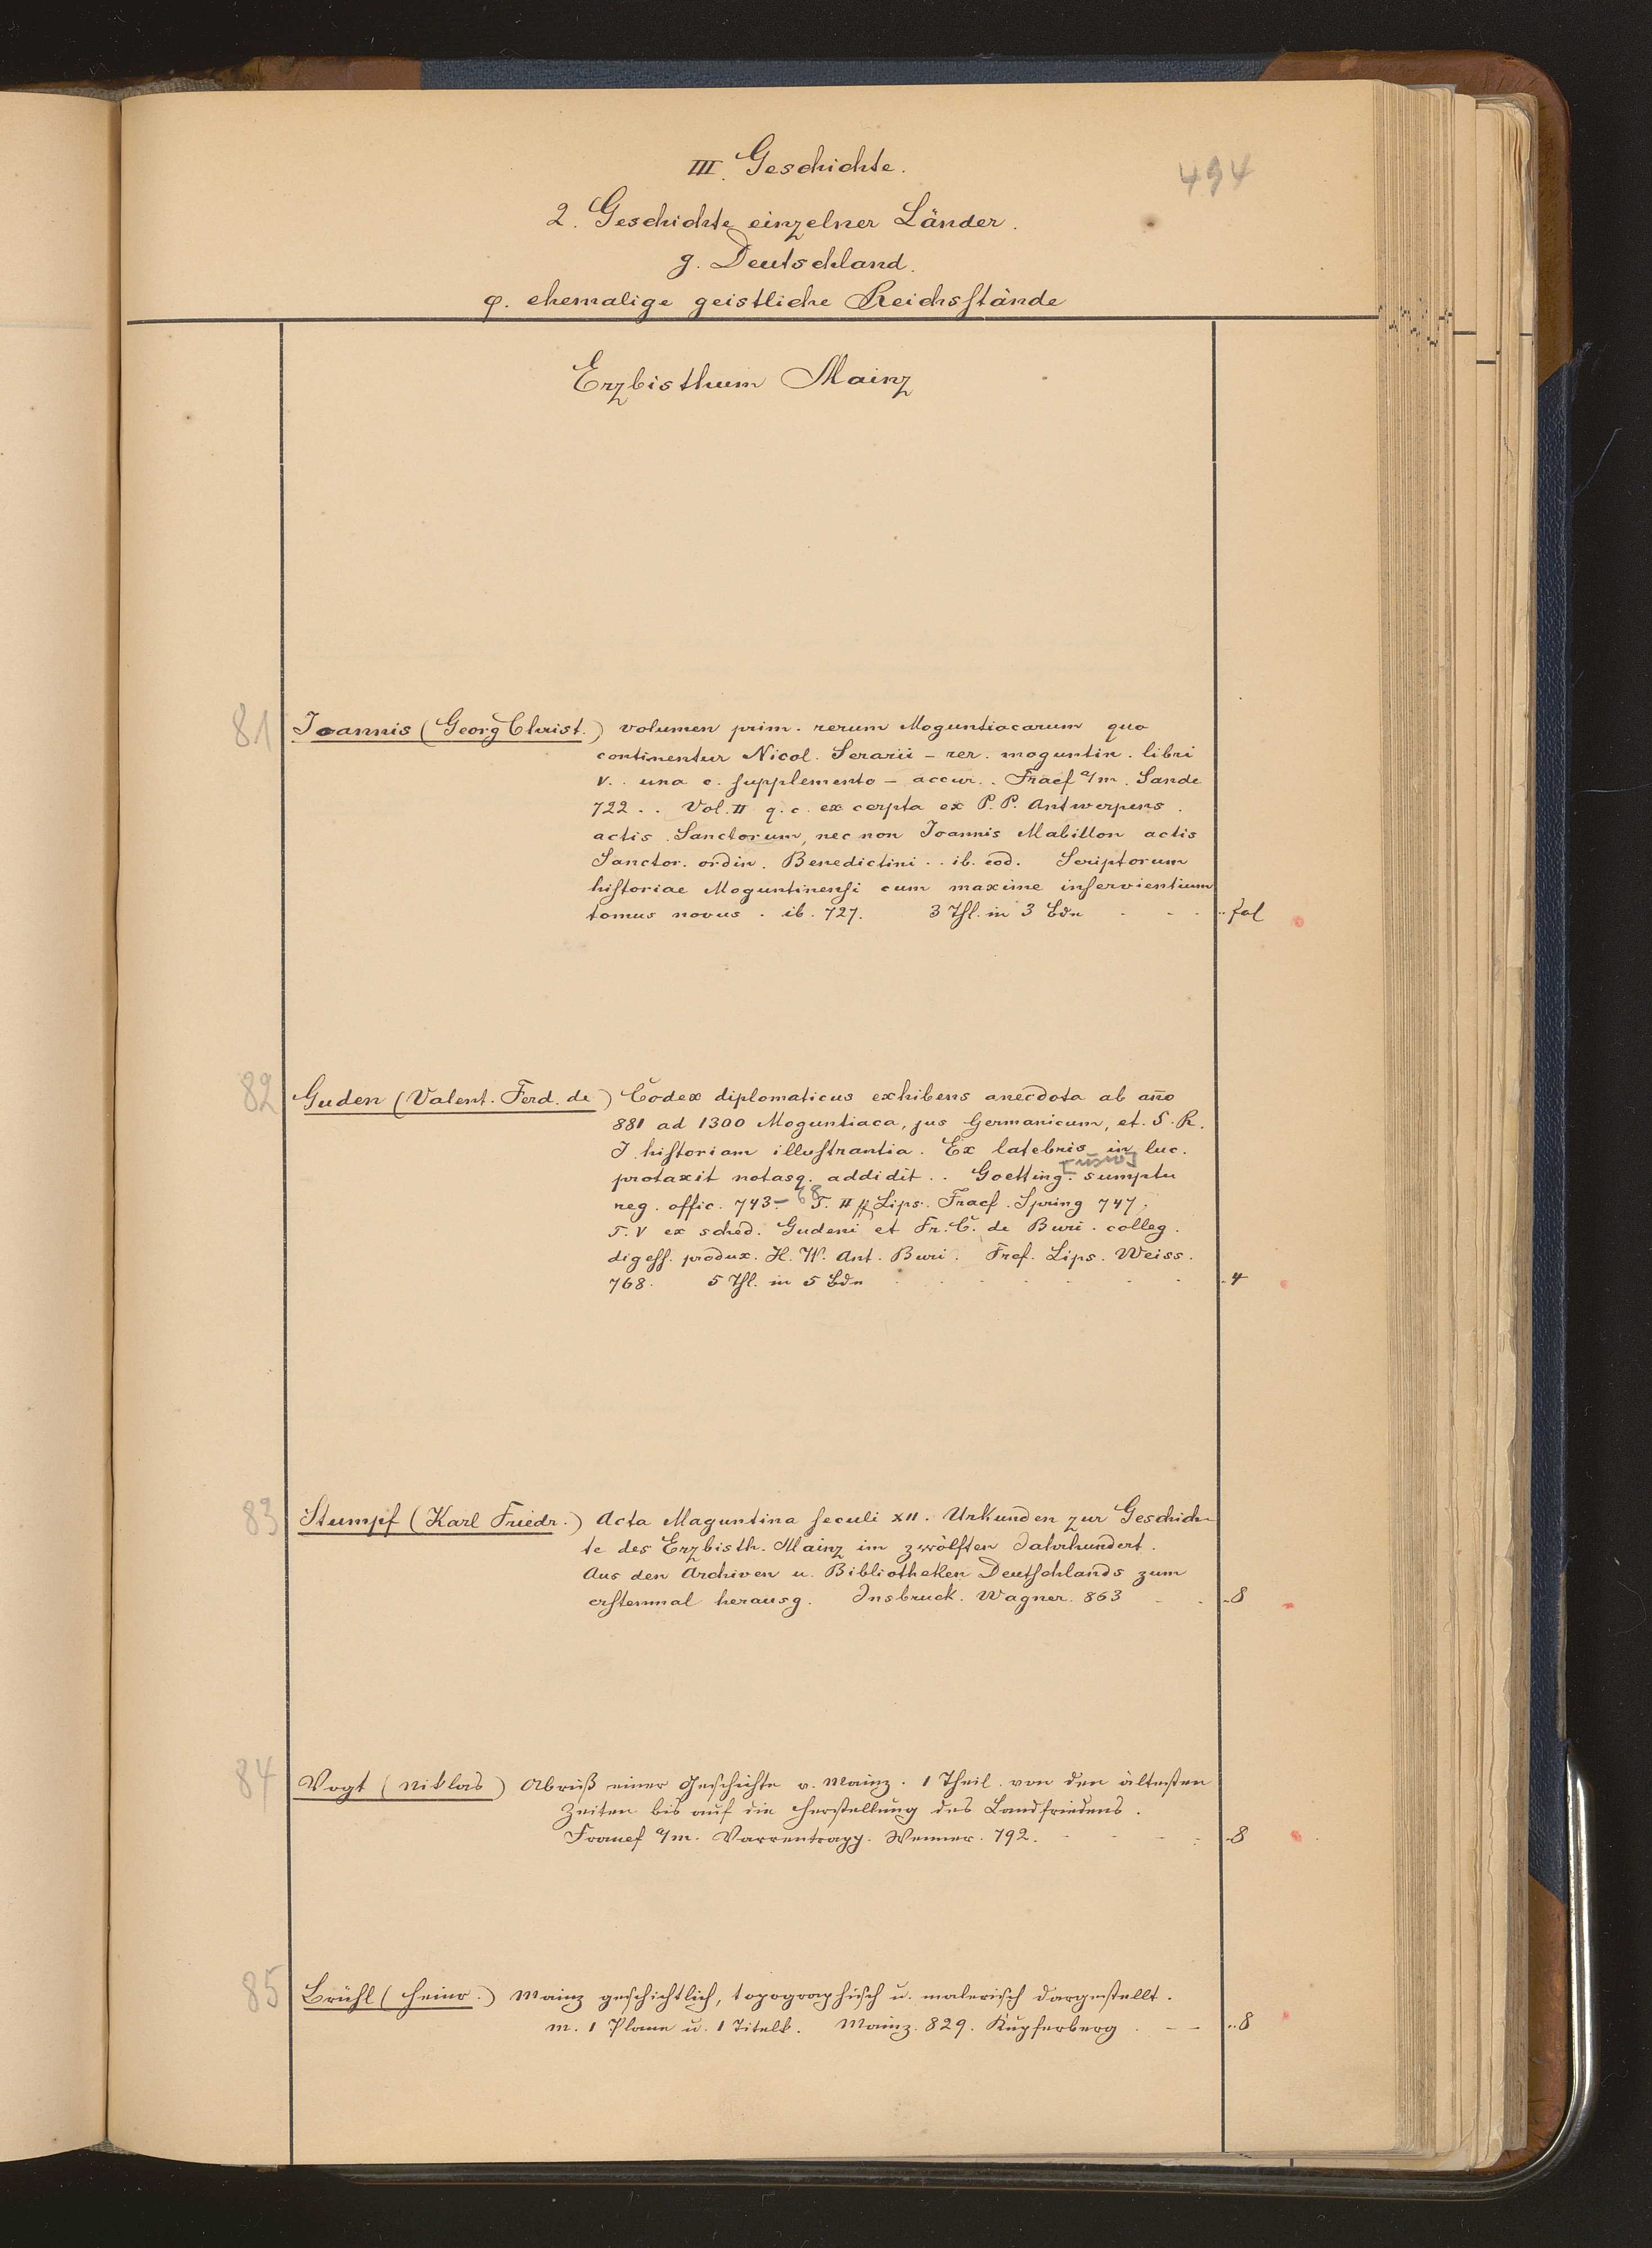 494
III. Geschichte.
2. Geschichte einzelner Länder.
g. Deutschland.
φ. ehemalige geistliche Reichsstände
Erzbisthum Mainz
81 Joannis (Georg Christ.) volumen prim. rerum Moguntiacarum quo
continentur Nicol. Serarii – rer. moguntin. libri
V. . una c. supplemento – accur. . Fracf a/m. Sande
722 . . Vol. II q. c. excerpta ex P. P. Antwerpens.
actis Sanctorum, nec non Joannis Mabillon actis
Sanctor. ordin. Benedictini . . ib. eod. Scriptorum
historiae Moguntinensi cum maxime inservientium
tomus novus . ib. 727. 3 Thl. in 3 Bdn . . . fol
82 Guden (Valent. Ferd. de) Codex diplomaticus exhibens anecdota ab año
881 ad 1300 Moguntiaca, jus Germanicum, et. S. R.
I historiam illustrantia. Ex latebris in luc.
protaxit notasq. addidit . . Goetting. sumptu
reg. offic. 743. – 68 T. II ff Lips. Fracf. Spring 747.
T. V ex sched. Gudeni et Fr. C. de Buri . colleg.
digess. produx. H. W. Ant. Buri. Fref. Lips. Weiss.
768. 5 Thl. in 5 Bdn . . . 4
83 Stumpf (Karl Friedr.) Acta Maguntina seculi XII. Urkunden zur Geschich-
te des Erzbisth. Mainz im zwölften Jahrhundert.
Aus den Archiven u. Bibliotheken Deutschlands zum
erstenmal herausg. Insbruck. Wagner. 863 . . 8
84 Vogt (Niklas) Abriß einer Geschichte v. Mainz. 1 Theil. von den ältesten
Zeiten bis auf die Herstellung des Landfriedens.
Francf a/m. Varrentrapp. Wenner. 792. . . 8
85 Brühl (Heinr.) Mainz geschichtlich, topographisch u. malerisch dargestellt.
m. 1 Plane u. 1 Titelk. Mainz. 829. Kupferberg . – – . . 8